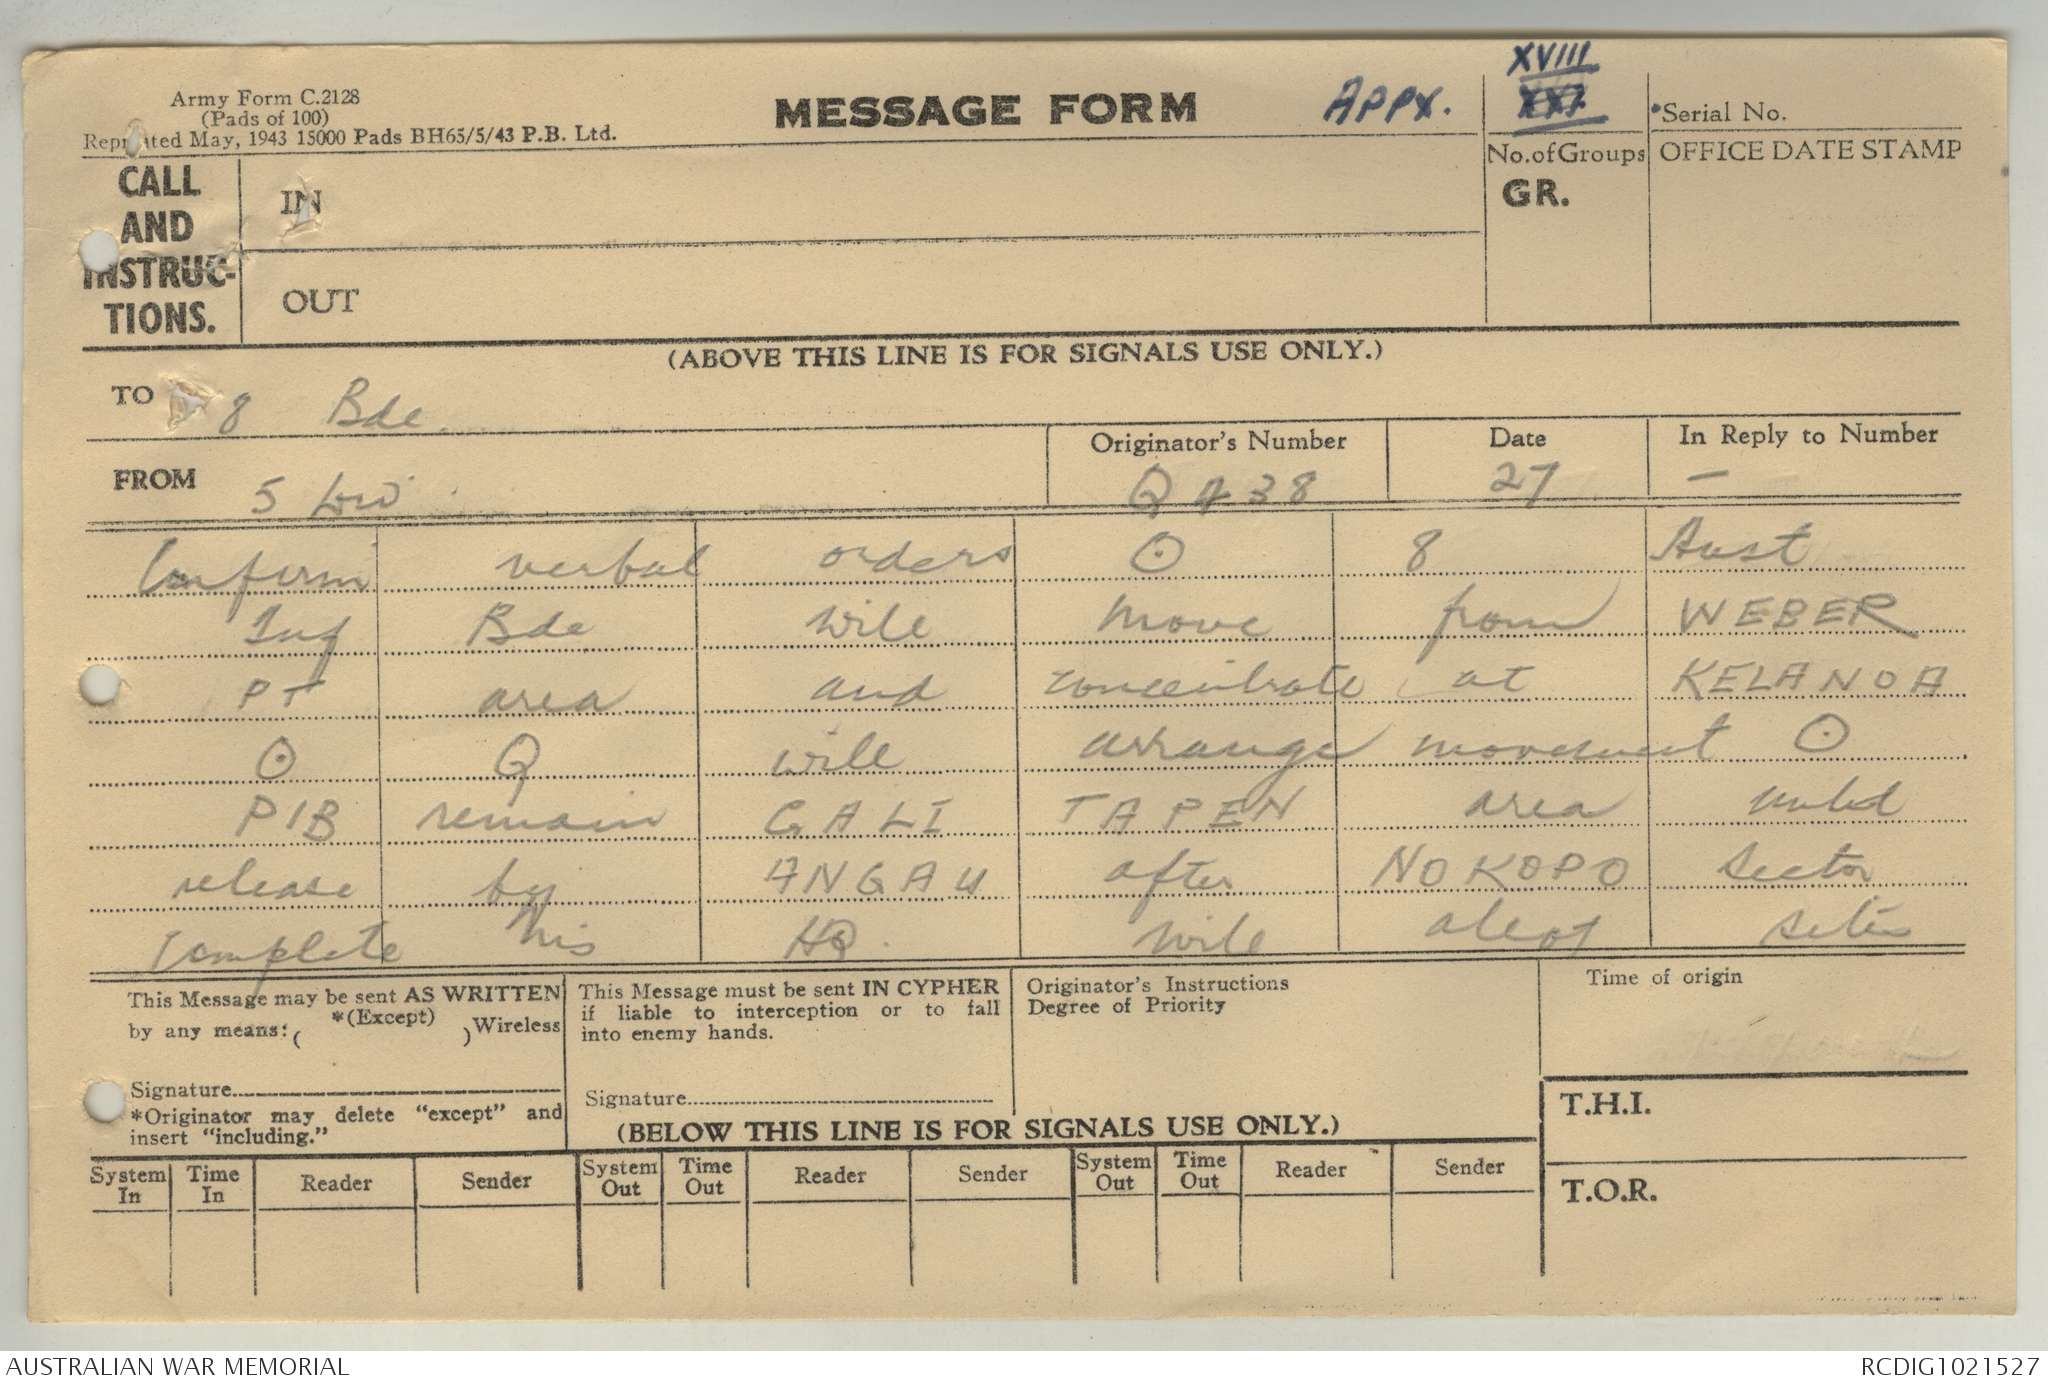 Army Form C.2128
(Pads of 100)
Reprinted May, 1943 15000 Pads BH65/5/43 P.B. Ltd.
MESSAGE FORM
Appx.
XVIII
XXI.
Serial No.
No. of Groups
GR.
OFFICE DATE STAMP
CALL
AND
INSTRUC-
TIONS.
IN
OUT
(ABOVE THIS LINE IS FOR SIGNALS USE ONLY.)
TO 8 Bde.
FROM 5
Originator's Number
Date 27
In Reply to Number -
Confirm verbal orders ⊙ 8 Aust
Inf Bde will move from WEBER
PT area and concentrate at KELANOA
⊙ Q will arrange movement ⊙
PIB remain GALI TAPEN area until
release by ANGAU after NOKOPO sector
complete this HQ. will
This Message may be sent AS WRITTEN
by any means: ( *(Except) ) Wireless
Signature
*Originator may delete "except" and
insert "including."
This Message must be sent IN CYPHER
if liable to interception or to fall
into enemy hands.
Signature
Originator's Instructions
Degree of Priority
Time of origin
T.H.I.
T.O.R.
(BELOW THIS LINE IS FOR SIGNALS USE ONLY.)
System In Time In Reader Sender System Out Time Out Reader Sender System Out Time Out Reader Sender
AUSTRALIAN WAR MEMORIAL
RCDIG1021527